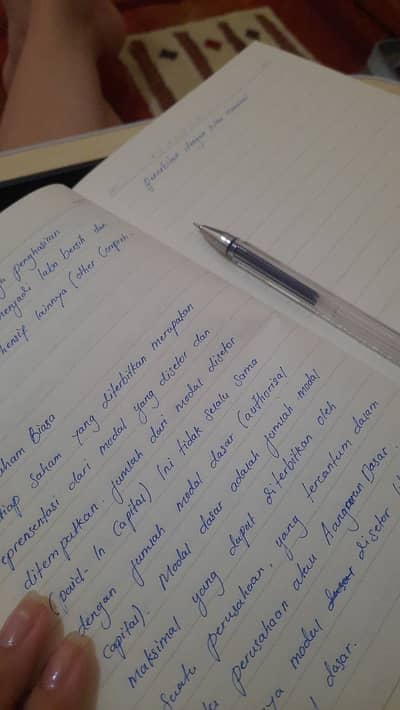 penghasilan
menjadi laba bersih dan
lainnya (other
Saham Biasa
tiap saham yang diterbitkan merupakan
eprensentasi dari modal yang disetor dan
ditempatkan. Jumlah dari modal disetor
(paid-In Capital) Ini tidak selalu sama
dengan jumlah modal dasar (authorisal
Capital). Modal dasar adalah jumlah modal
maksimal yang dapat diterbitkan oleh
suatu perusahaan, yang tercantum dalam
perusahaan atau Aanggaran Dasar.
modal disetor
dasar.
dengan